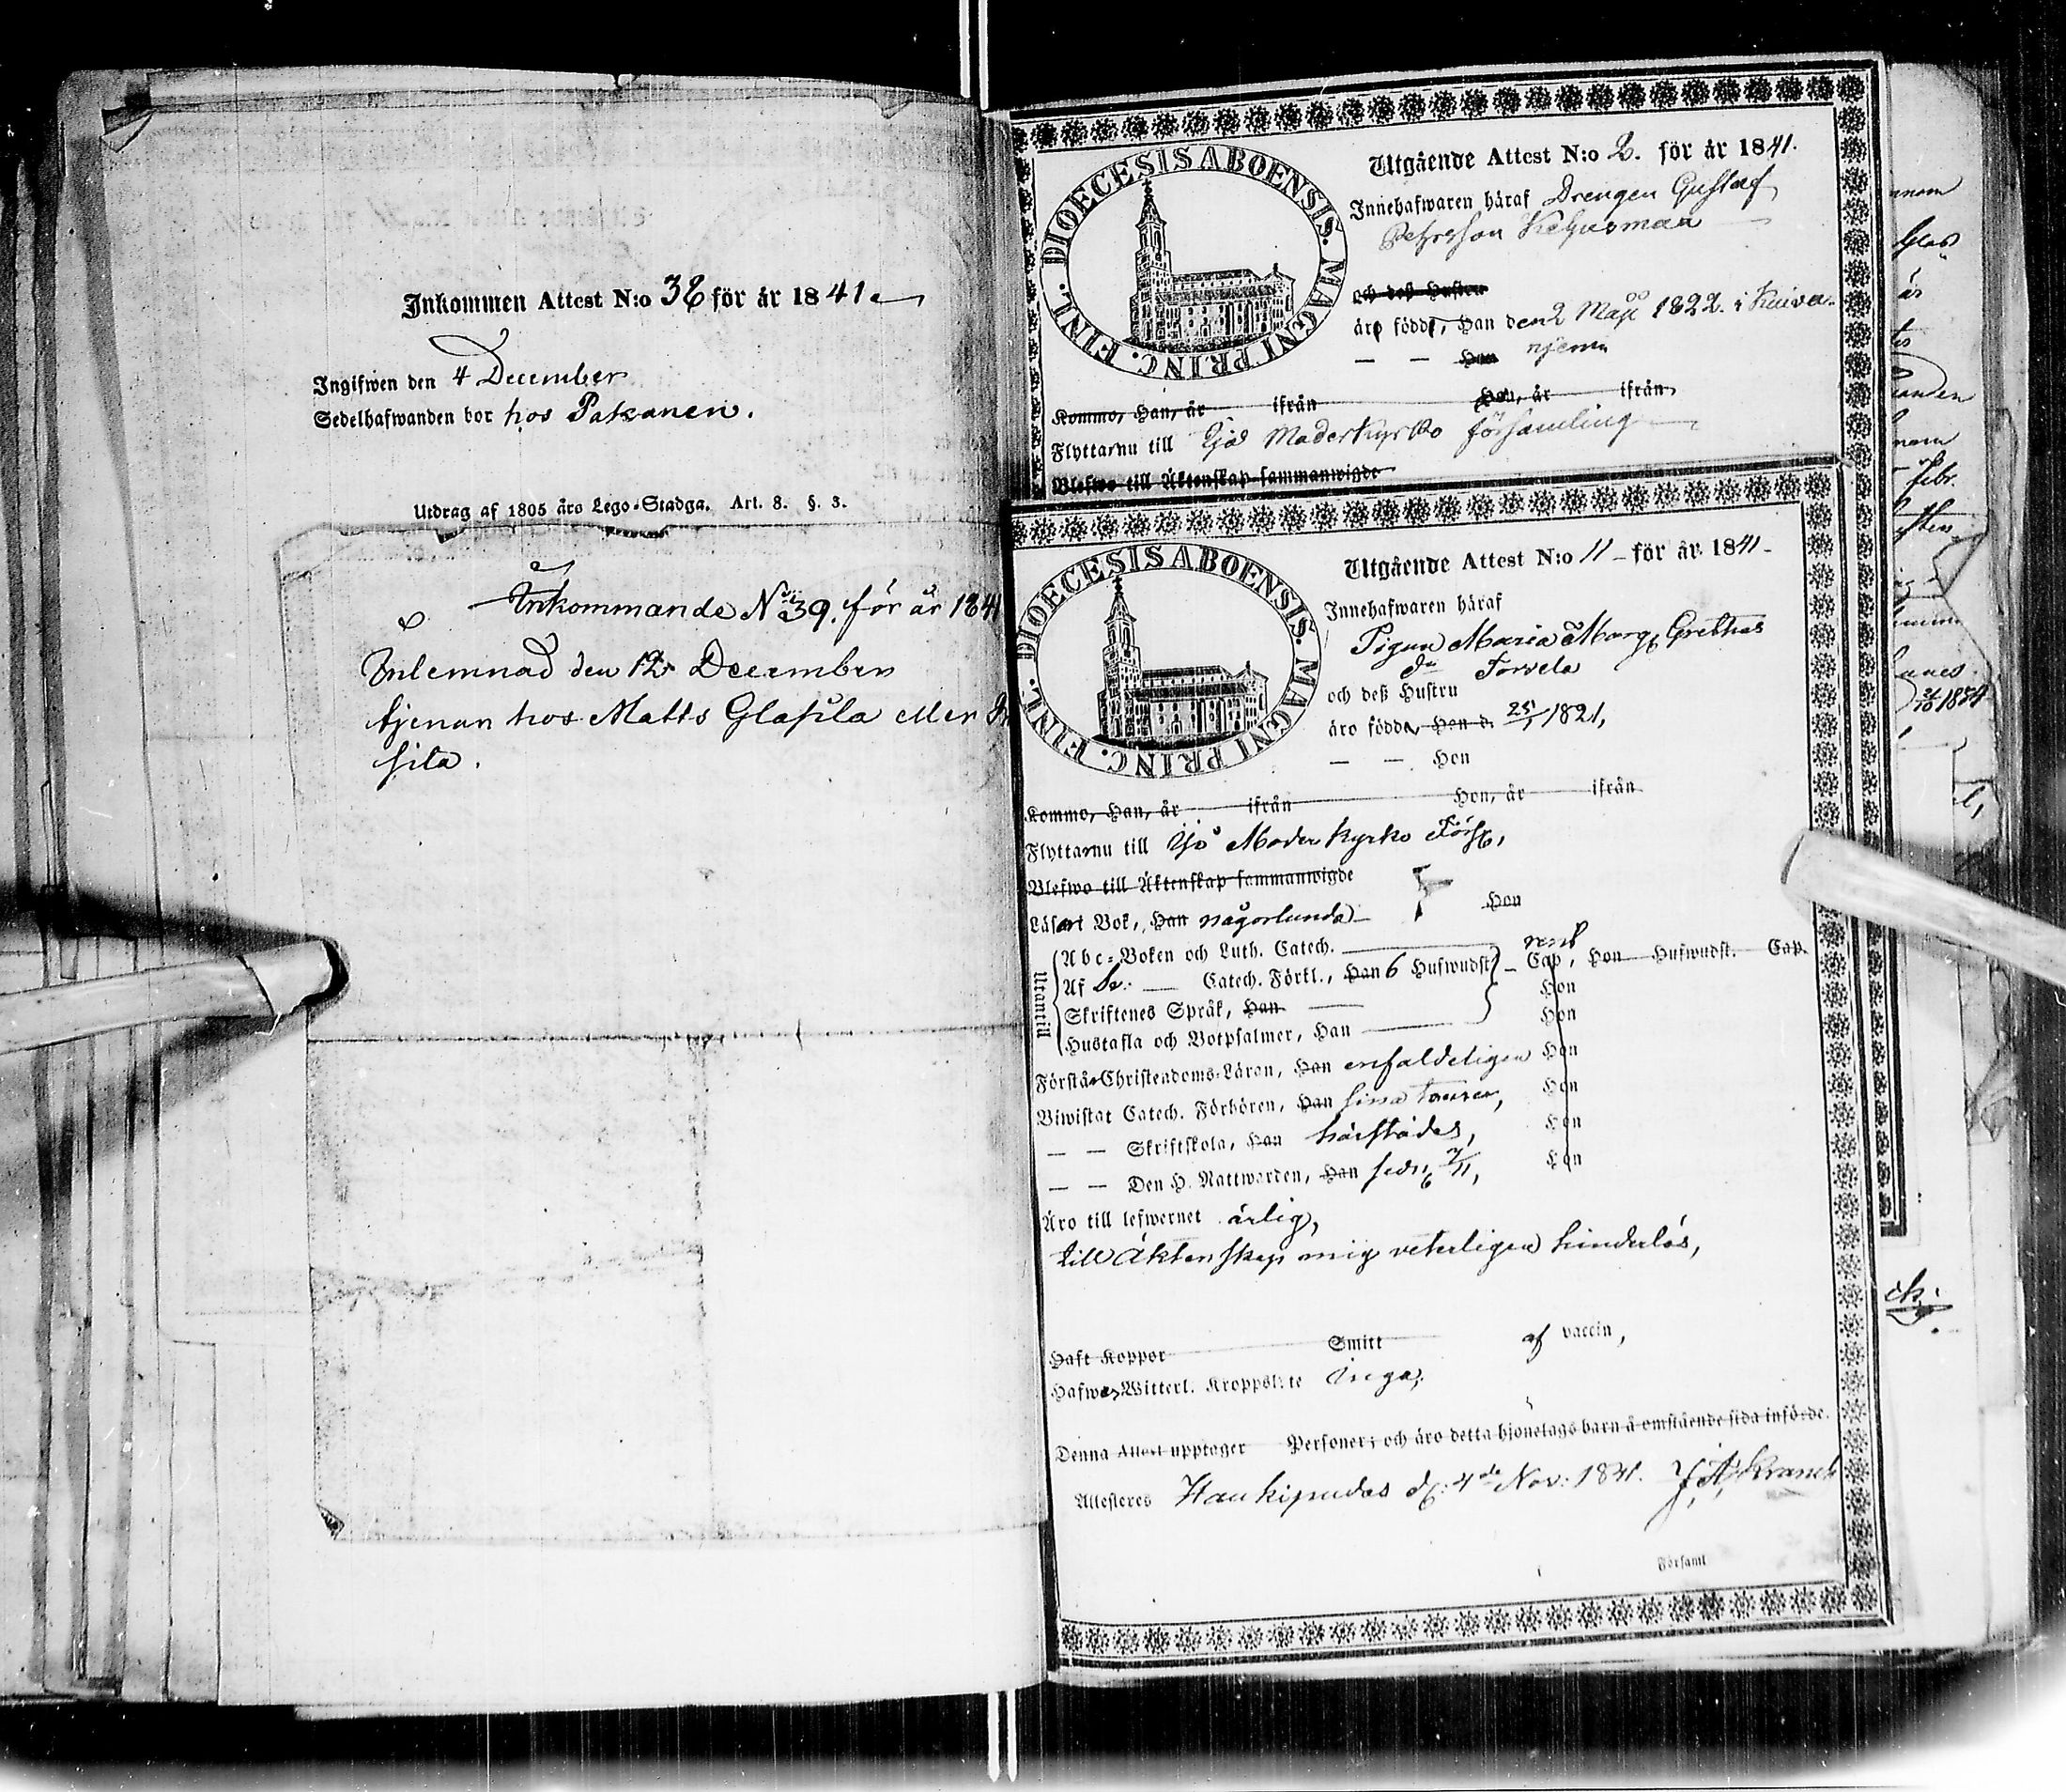 Inkommen Attest N:o 38 för år 1841
Ingifwen den 4 December
Sedelhafwanden bor hos Pakanen.
Utdrag af 1805 års Lego-Stadga. Art. 8. §. 3.
Inkommande No 39. för år 1841
Inlemnad den 12 December
tjenan hos Matts Glasila eller
sila.
DIOECESIS ABOENSIS. MAGNI PRINC. FINL.
Utgående Attest N:o 2. för år 1841.
Innehafwaren häraf Drengen Gustaf
Pehrsson Kehusmaa
och deß Hustru
äro födde, Han den 2 Maji 1822. i Kuiva-
— — Hon njemi
Kommo, Han, år ifrån Hon, år ifrån
Flyttarnu till Ijo Moderkyrko församling
Blefwo till Äktenskap sammanwigde
DIOECESIS ABOENSIS. MAGNI PRINC. FINL.
Utgående Attest N:o 11 - för år 1841 -
Innehafwaren häraf
Pigan Maria Marg. Grethas
dr Torvela
och deß Hustru
äro födde, Han d. 25/1 1821,
— — Hon
Kommo, Han, år ifrån Hon, år ifrån
Flyttarnu till Ijo Moder kyrko Förs.,
Blefwo till Äktenskap sammanwigde
Läsa i Bok, Han någorlunda Hon
Utantill
Abc-Boken och Luth. Catech.
Af Sv. Catech. Förkl., Han 6 Hufwudst. Cap, Hon Hufwudst. Cap.
Skriftenes Språk, Han Hon
Hustafla och Botpsalmer, Han Hon
Förstår Christendoms-Läran, Han enfaldeligen Hon
Biwistat Catech. Förhören, Han sina Hon
— — Skriftskola, Han härstädes, Hon
— — Den H. Nattwarden, Han sedn. 7/11, Hon
Äro till lefwernet ärlig,
till Äktenskap mig veterligen hinderlös,
Haft Koppor Smitt af vaccin,
Hafwa Witterl. Kroppslyte inga,
Denna Attest upptager Personer; och äro detta hjonelags barn å omstående sida införde.
Attesteras Haukipudas d. 4de Nov: 1841. J. A. Kranck
Församl